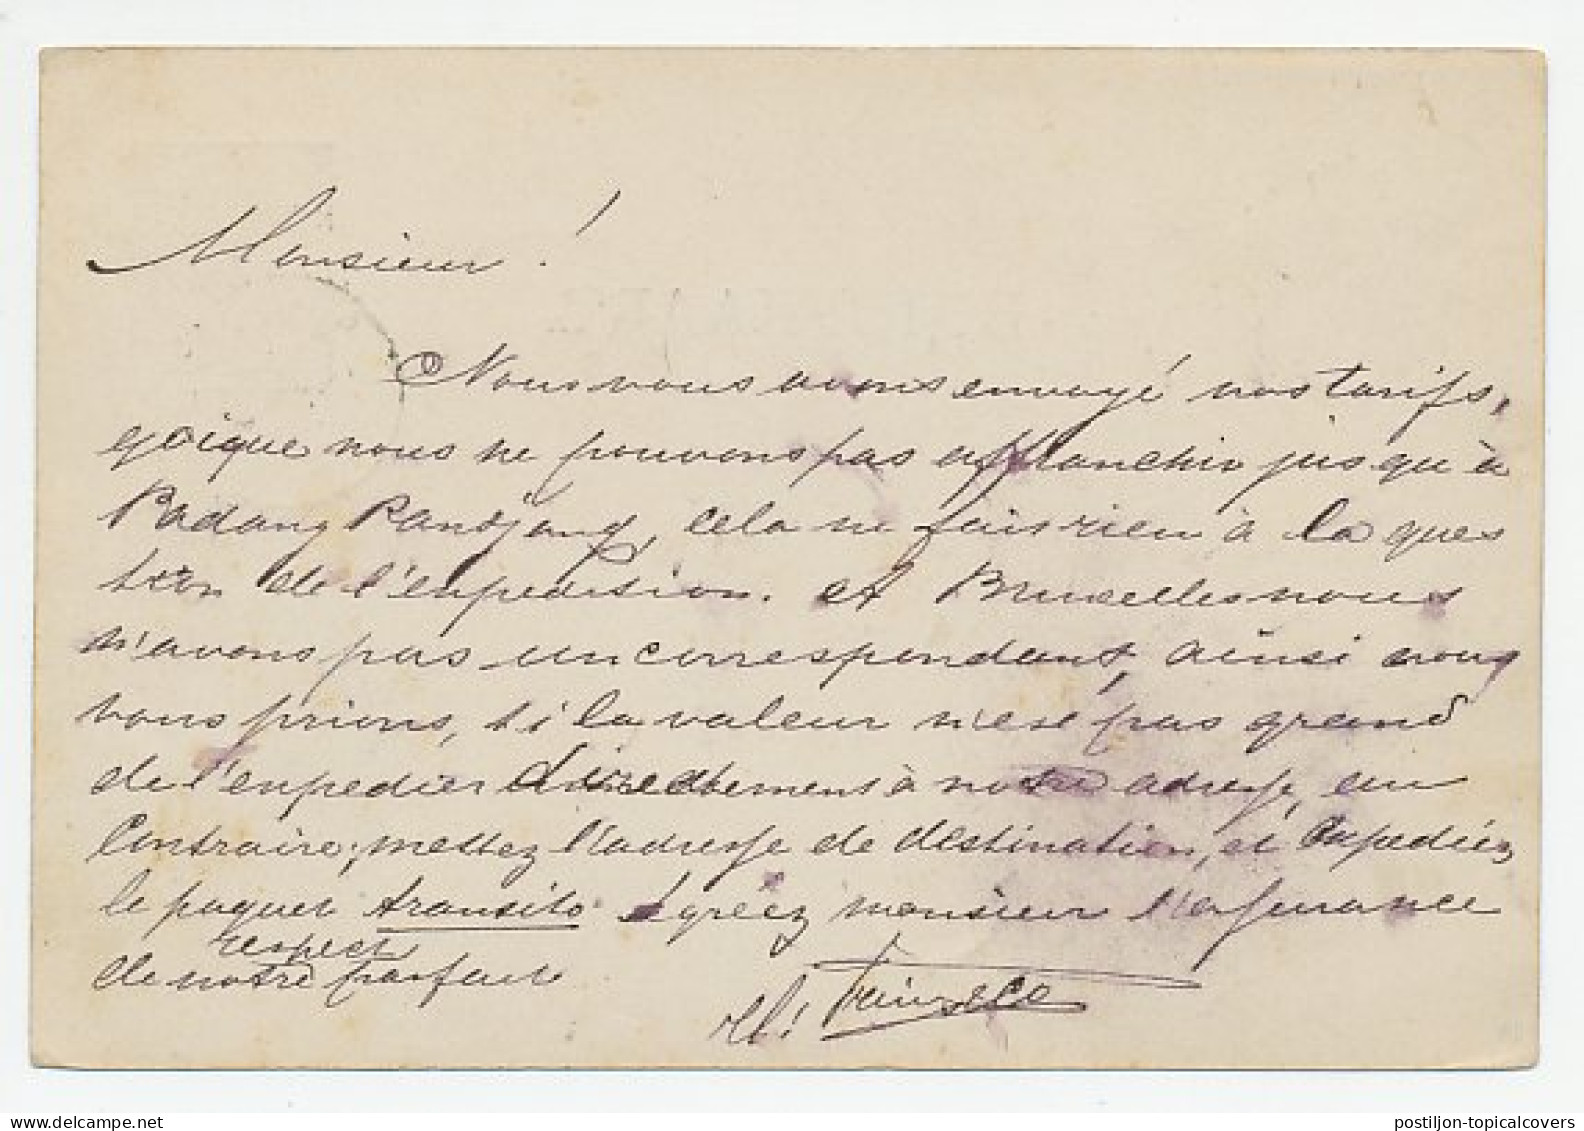 Monsieur!
Nous vous avons envoyé nos tarifs,
qoique nous ne pouvons pas affranchir jusqu'à
Padang Pandjang, cela ne fais rien à la ques
tion de l'expedision. et Bruxelles nous
n'avons pas un correspondant, ainsi nous
vous prions, si la valeur n'est pas grand
de l'expedier directtement à notre adresse, en
Contraire, mettez l'adresse de destination, et expediez
le paquet transito. Agréez monsieur l'assurance
respect
de notre parfait
postiljon-topicalcovers